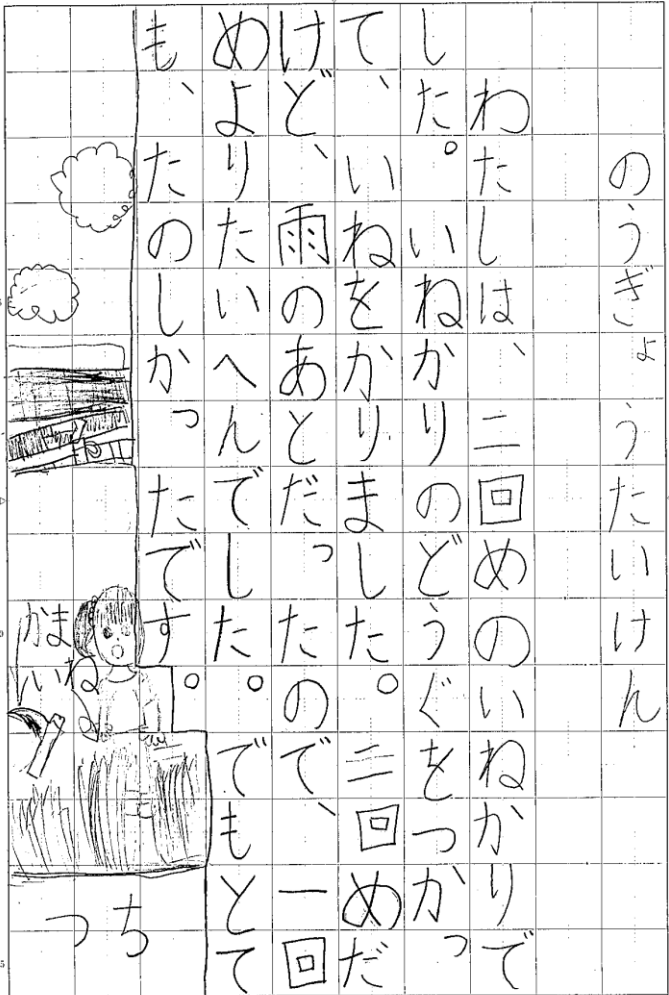 のうぎょうたいけん
わたしは、二回めのいねかりで
した。いねかりのどうぐをつかっ
て、いねをかりました。二回めだ
けど、雨のあとだったので、一回
めよりたいへんでした。でもとて
も、たのしかったです。
かま
いね
つち